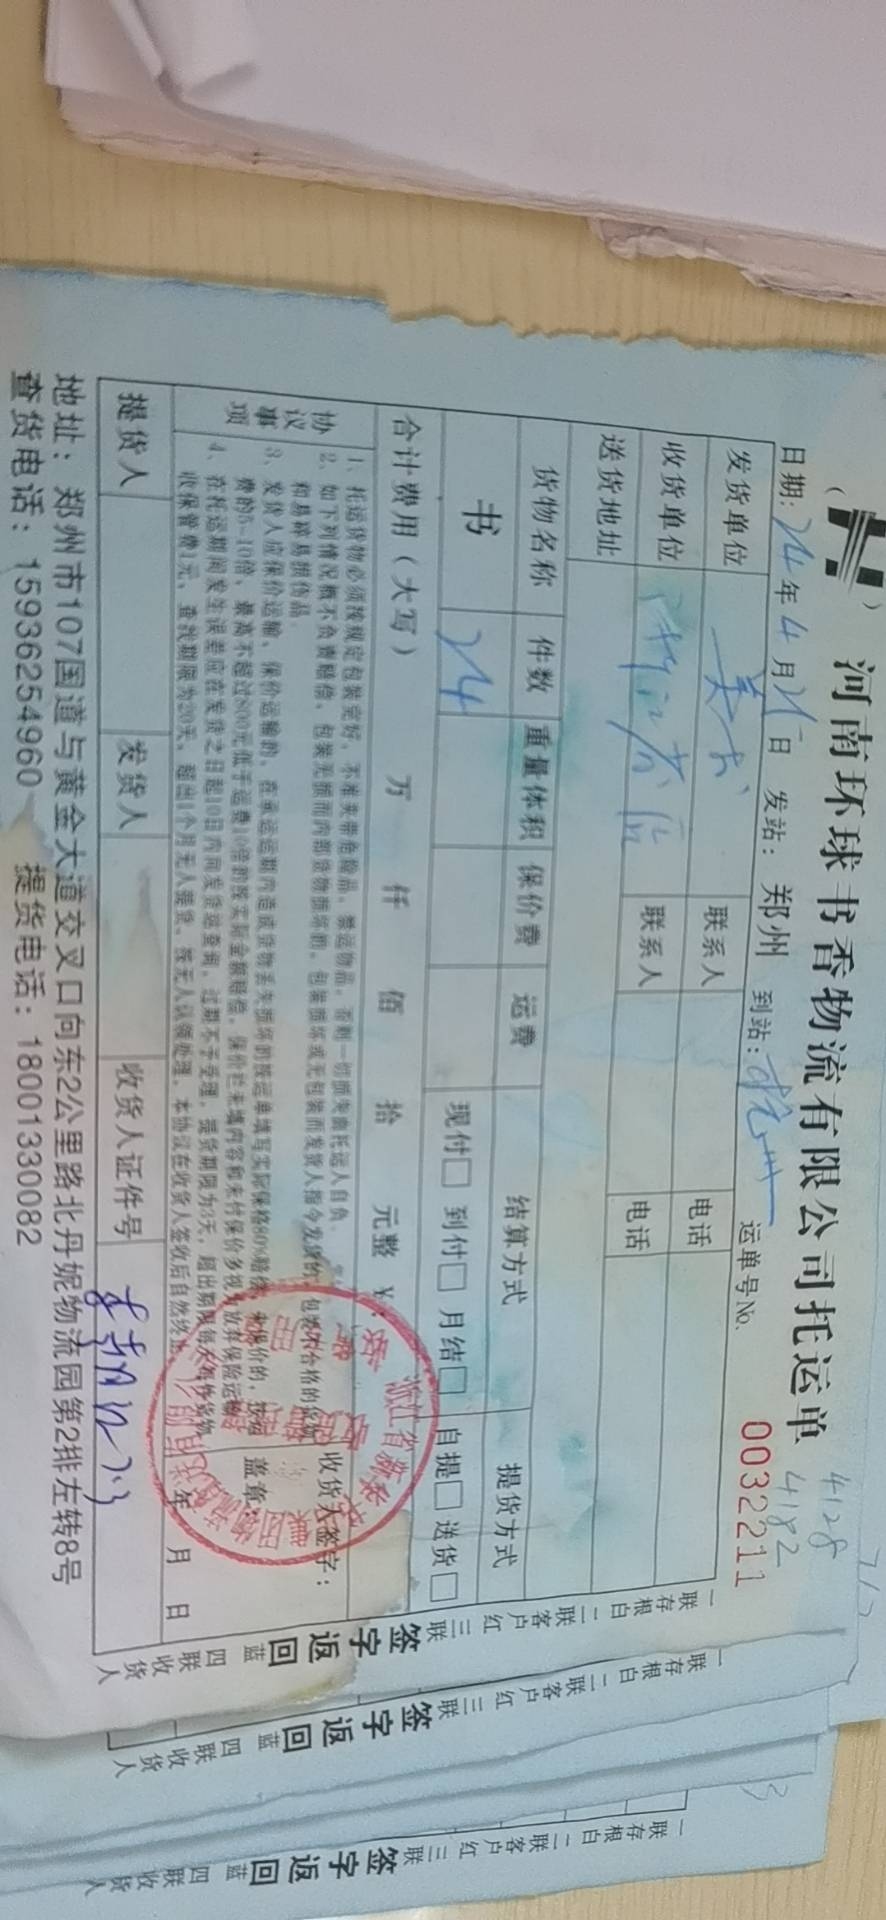 河南环球书香物流有限公司托运单
4128
4182
日期:24年4月 日 发站:郑州 到站:杭州 运单号No. 0032211
发货单位 美术 联系人 电话
收货单位 浙江省店 联系人 电话
送货地址
货物名称 件数 重量体积 保价费 运费 结算方式 提货方式
书 24 现付□ 到付□ 月结□ 自提□ 送货□
合计费用(大写) 万 仟 佰 拾 元整 ¥:
协议事项
1、托运货物必须按规定包装完好,不准夹带危险品、禁运物品,否则一切损失由托运人自负。
2、如下列情况概不负责赔偿,包装无损而内部货物损坏的,包装损坏或无包装而发货人指令发货的,包装不合格的货物
和易碎易损伤品。
3、发货人应保价运输,保价运输的,在承运期内造成货物丢失损坏的按运单填写实际保格80%赔偿,未保价的,按运
费的5-10倍,最高不超过800元低于运费10倍的按实际金额赔偿,保价栏未填内容和未付保价多视为放弃保险运输
4、在托运期间发生误差应在发货之日起10日内向发货站查询,过期不予受理,提货期限为3天,超出期限每天每件货物
收保管费1元,查找期限为20天,超出1个月无人提货,按无人认领处理,本协议在收货人签收后自然终止
收货人签字:
盖章:
年 月 日
浙江省新华书店集团
提货人 发货人 收货人证件号
地址:郑州市107国道与黄金大道交叉口向东2公里路北丹妮物流园第2排左转8号
查货电话:15936254960 提货电话:18001330082
一联存根白 二联客户红 三联签字返回蓝 四联收货人
一联存根白 二联客户红 三联签字返回蓝 四联收货人
一联存根白 二联客户红 三联签字返回蓝 四联收货人